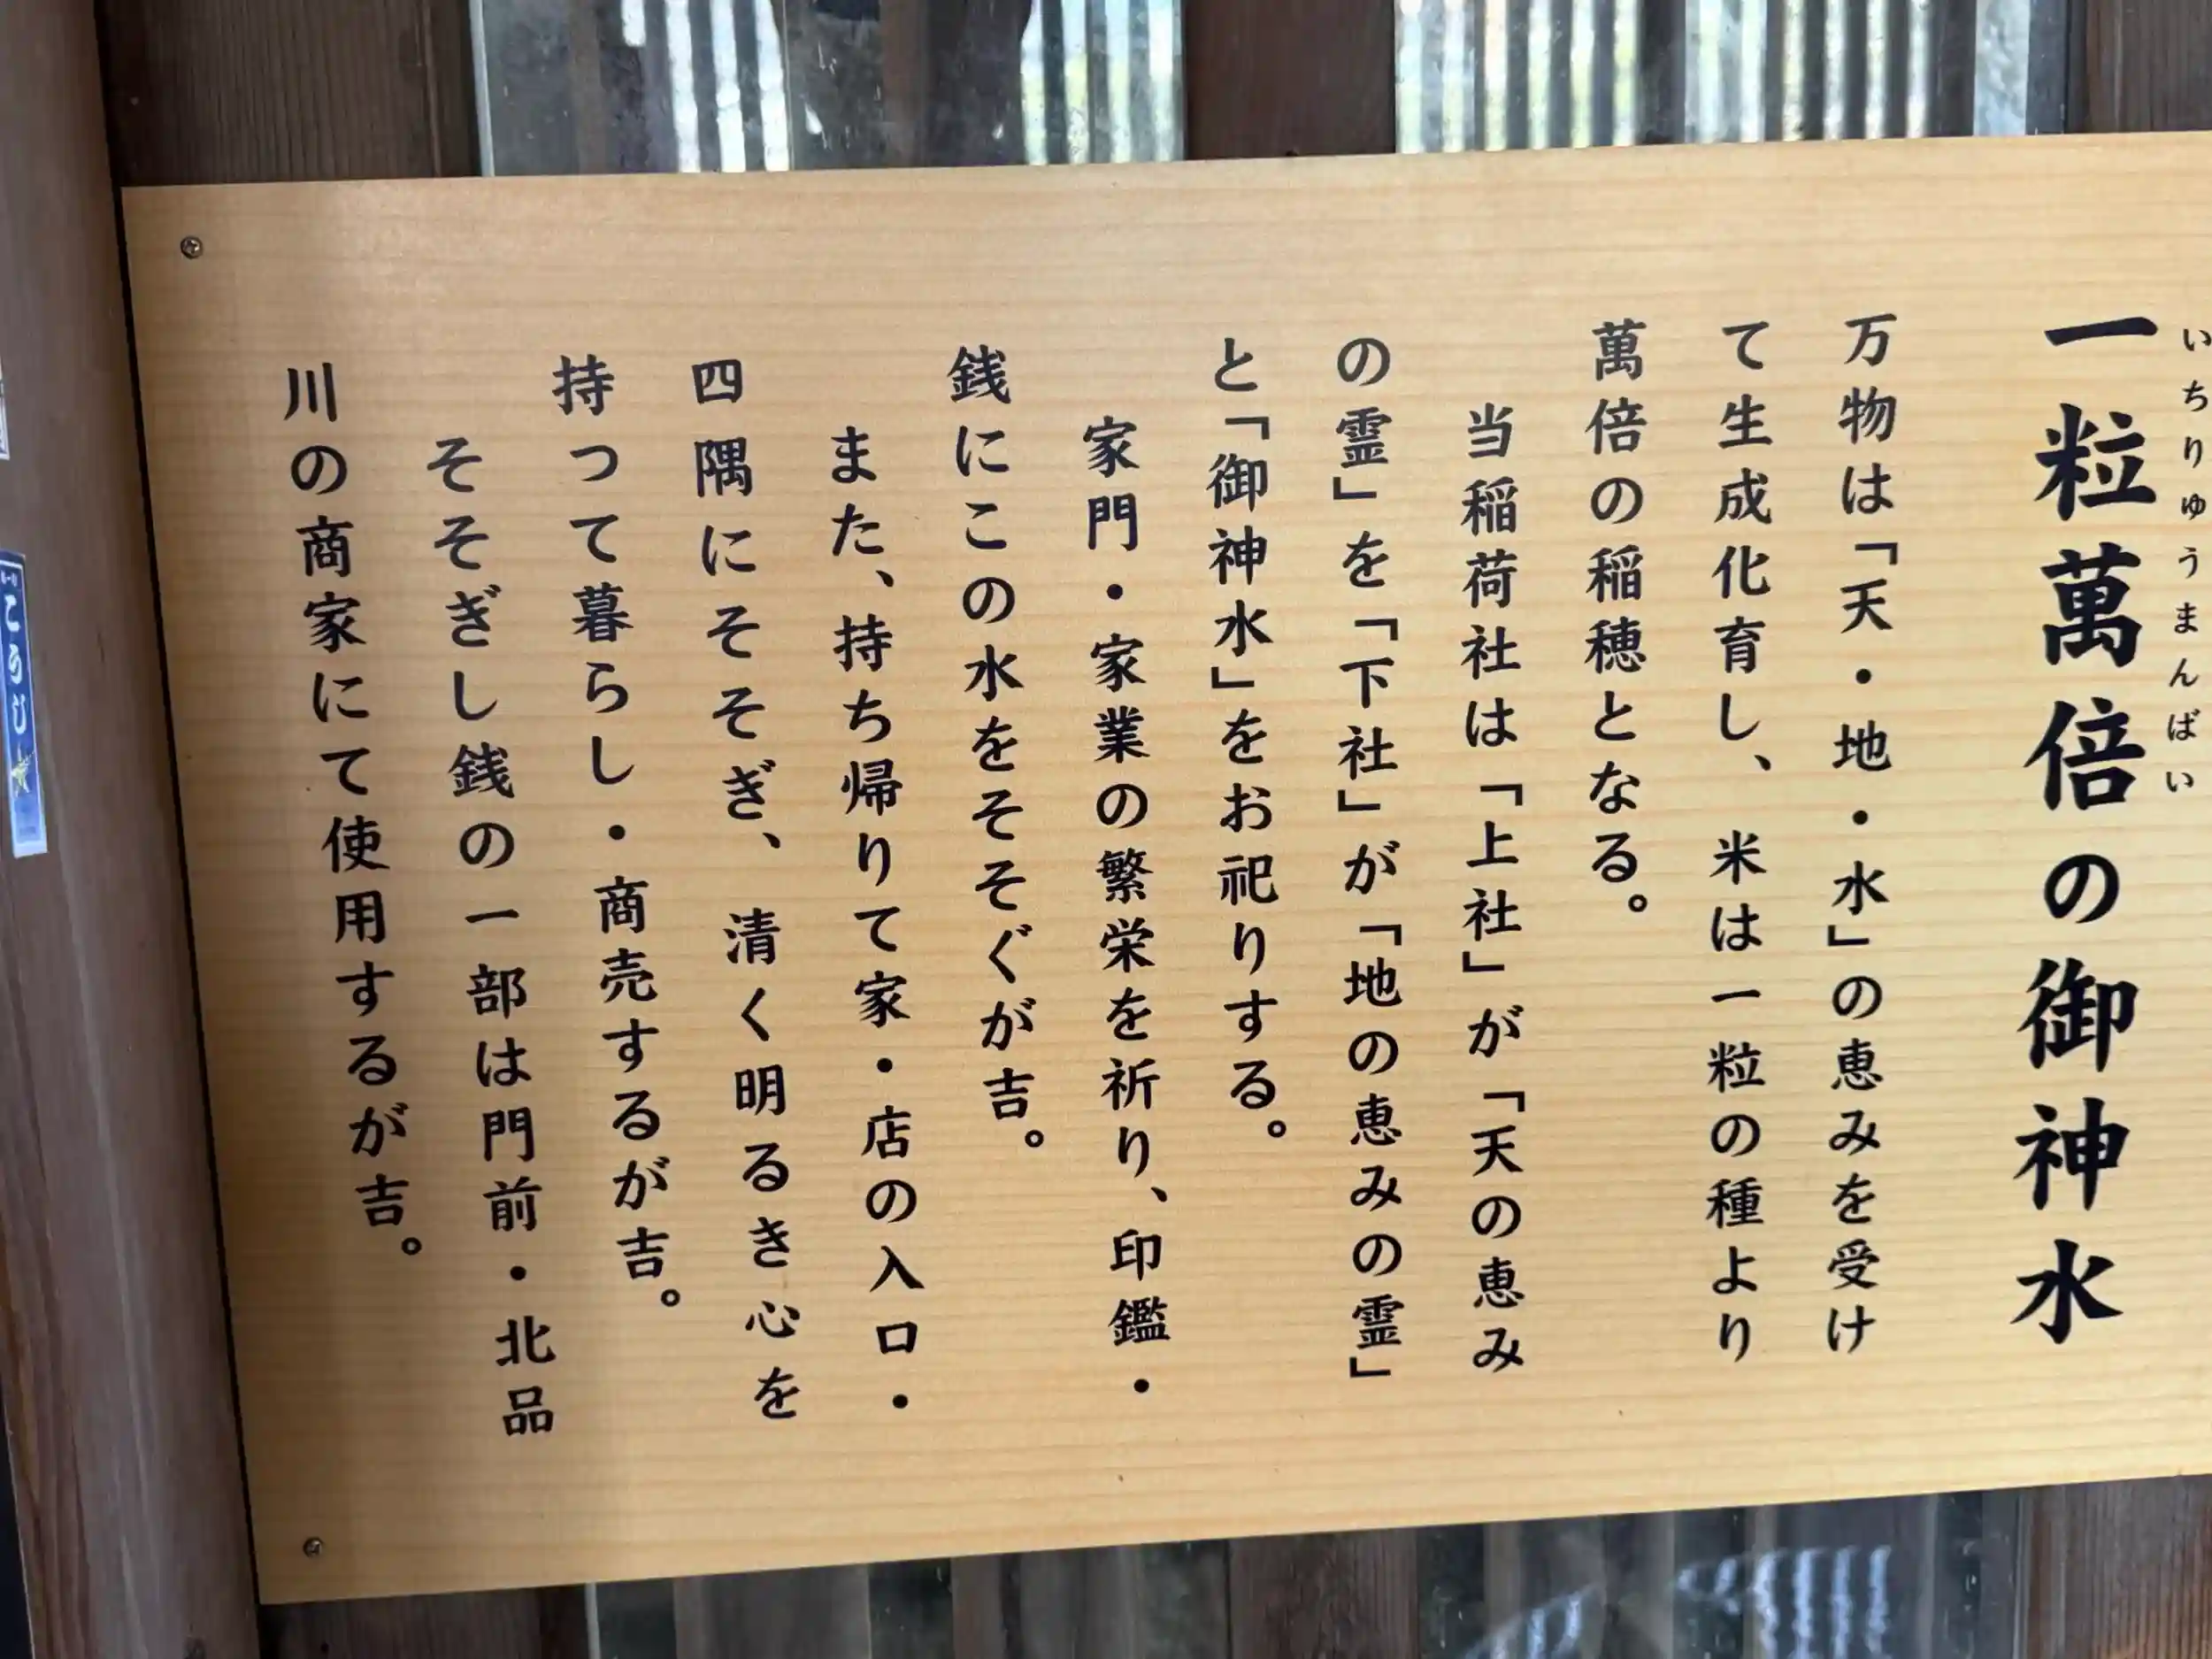 いちりゅうまんばい
一粒萬倍の御神水
万物は「天・地・水」の恵みを受け
て生成化育し、米は一粒の種より
萬倍の稲穂となる。
当稲荷社は「上社」が「天の恵み
の霊」を「下社」が「地の恵みの霊」
と「御神水」をお祀りする。
家門・家業の繁栄を祈り、印鑑・
銭にこの水をそそぐが吉。
また、持ち帰りて家・店の入口・
四隅にそそぎ、清く明るき心を
持つて暮らし・商売するが吉。
そそぎし銭の一部は門前・北品
川の商家にて使用するが吉。
こうじ